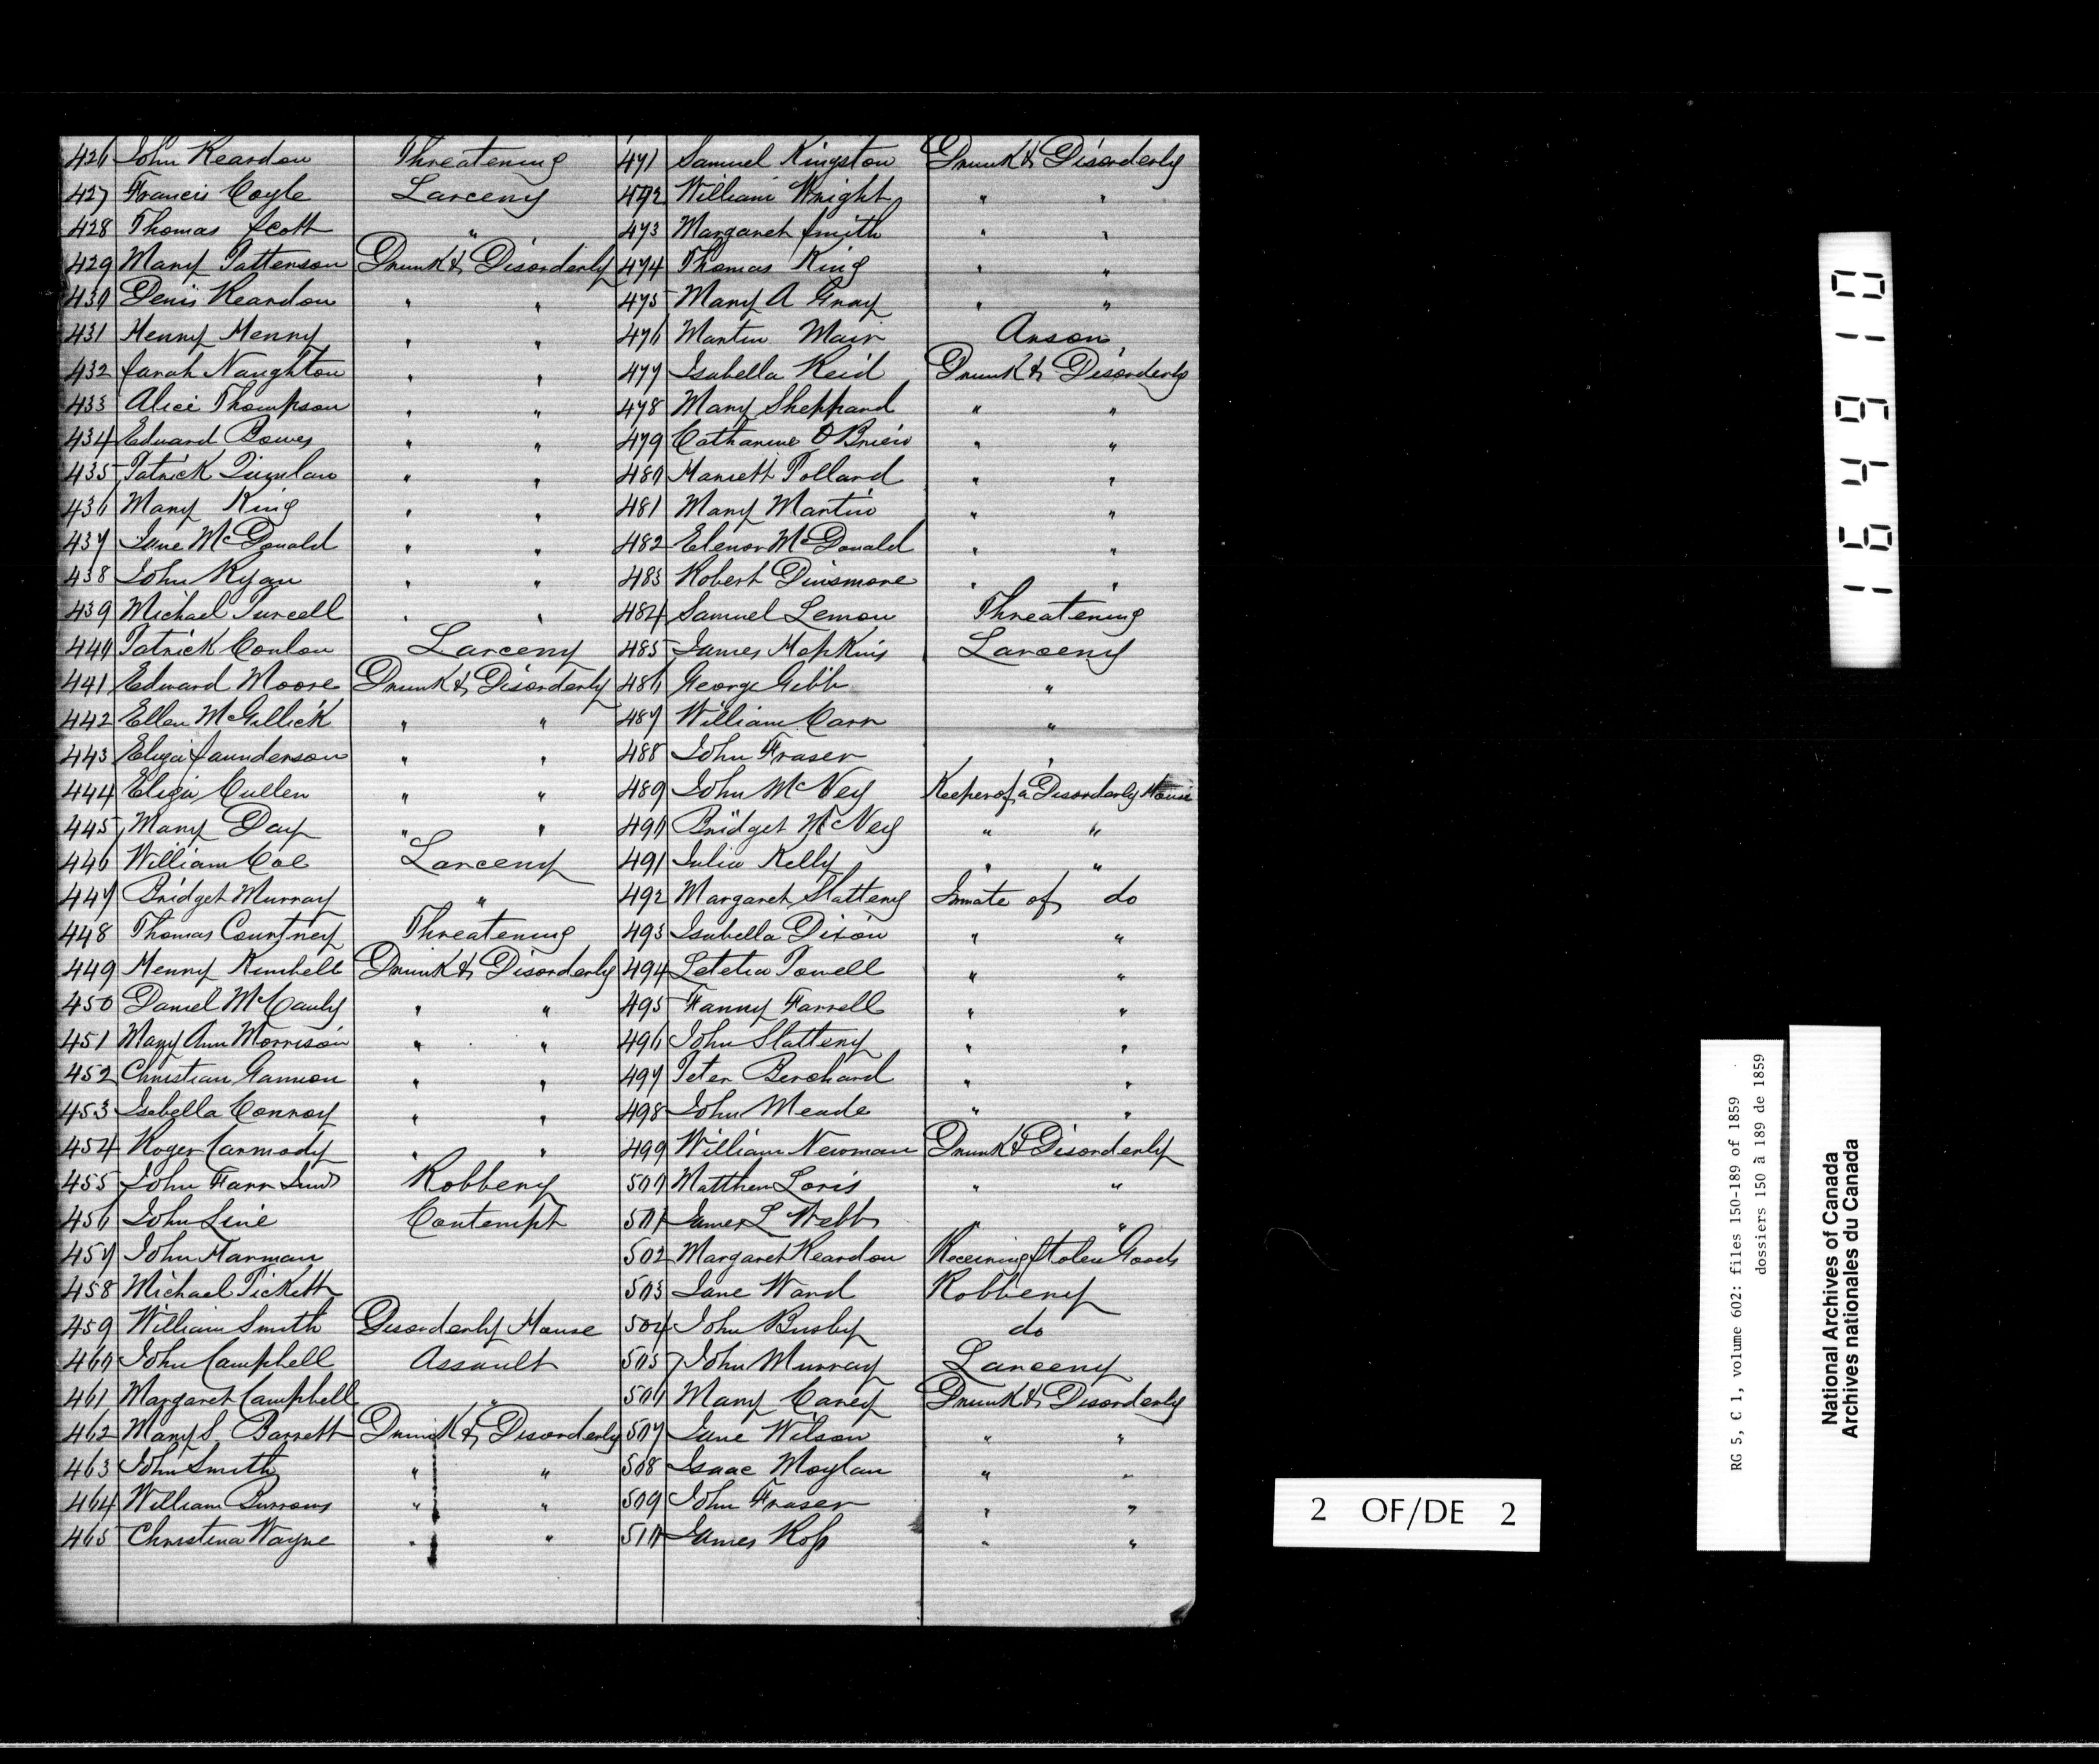 426 John Reardon Threatening
427 Francis Coyle Larceny
428 Thomas Scott "
429 Mary Patterson Drunk & Disorderly
430 Denis Reardon " "
431 Henry Henry " "
432 Sarah Naughton " "
433 Alice Thompson " "
434 Edward Bowes " "
435 Patrick Quinlan " "
436 Mary King " "
437 Jane McDonald " "
438 John Ryan " "
439 Michael Purcell " "
440 Patrick Conlon Larceny
441 Edward Moore Drunk & Disorderly
442 Ellen McGillick " "
443 Eliza Saunderson " "
444 Eliza Cullen " "
445 Mary Day " "
446 William Coe Larceny
447 Bridget Murray "
448 Thomas Courtney Threatening
449 Henry Kimbell Drunk & Disorderly
450 Daniel McCauly " "
451 Mary Ann Morrison " "
452 Christian Gannon " "
453 Isabella Conroy " "
454 Roger Carmody " "
455 John Farr Robbery
456 John Line Contempt
457 John Harman
458 Michael Pickett
459 William Smith Disorderly House
460 John Campbell Assault
461 Margaret Campbell "
462 Mary S. Barrett Drunk & Disorderly
463 John Smith " "
464 William Burrows " "
465 Christina Wayne " "
471 Samuel Kingston Drunk & Disorderly
472 William Wright " "
473 Margaret Smith " "
474 Thomas King " "
475 Mary A Gray " "
476 Martin Mair Arson
477 Isabella Reid Drunk & Disorderly
478 Mary Sheppard " "
479 Catharine O'Brien " "
480 Harriett Pollard " "
481 Mary Martin " "
482 Elenor McDonald " "
483 Robert Dinsmore " "
484 Samuel Lemon Threatening
485 James Hopkins Larceny
486 George Gibb "
487 William Carr "
488 John Fraser "
489 John McVey Keeper of a Disorderly House
490 Bridget McVey " "
491 Julia Kelly " "
492 Margaret Slattery Inmate of do
493 Isabella Dixon " "
494 Letetia Powell " "
495 Fanny Farrell " "
496 John Slattery " "
497 Peter Berchard " "
498 John Meade " "
499 William Newman Drunk & Disorderly
500 Matthew Loris " "
501 James L Webb " "
502 Margaret Reardon Receiving Stolen Goods
503 Jane Ward Robbery
504 John Busby do
505 John Murray Larceny
506 Mary Carey Drunk & Disorderly
507 Jane Wilson " "
508 Isaac Moylan " "
509 John Fraser " "
510 James Ross " "
164910
RG 5, C 1, volume 602: files 150-189 of 1859
dossiers 150 à 189 de 1859
National Archives of Canada
Archives nationales du Canada
2 OF/DE 2